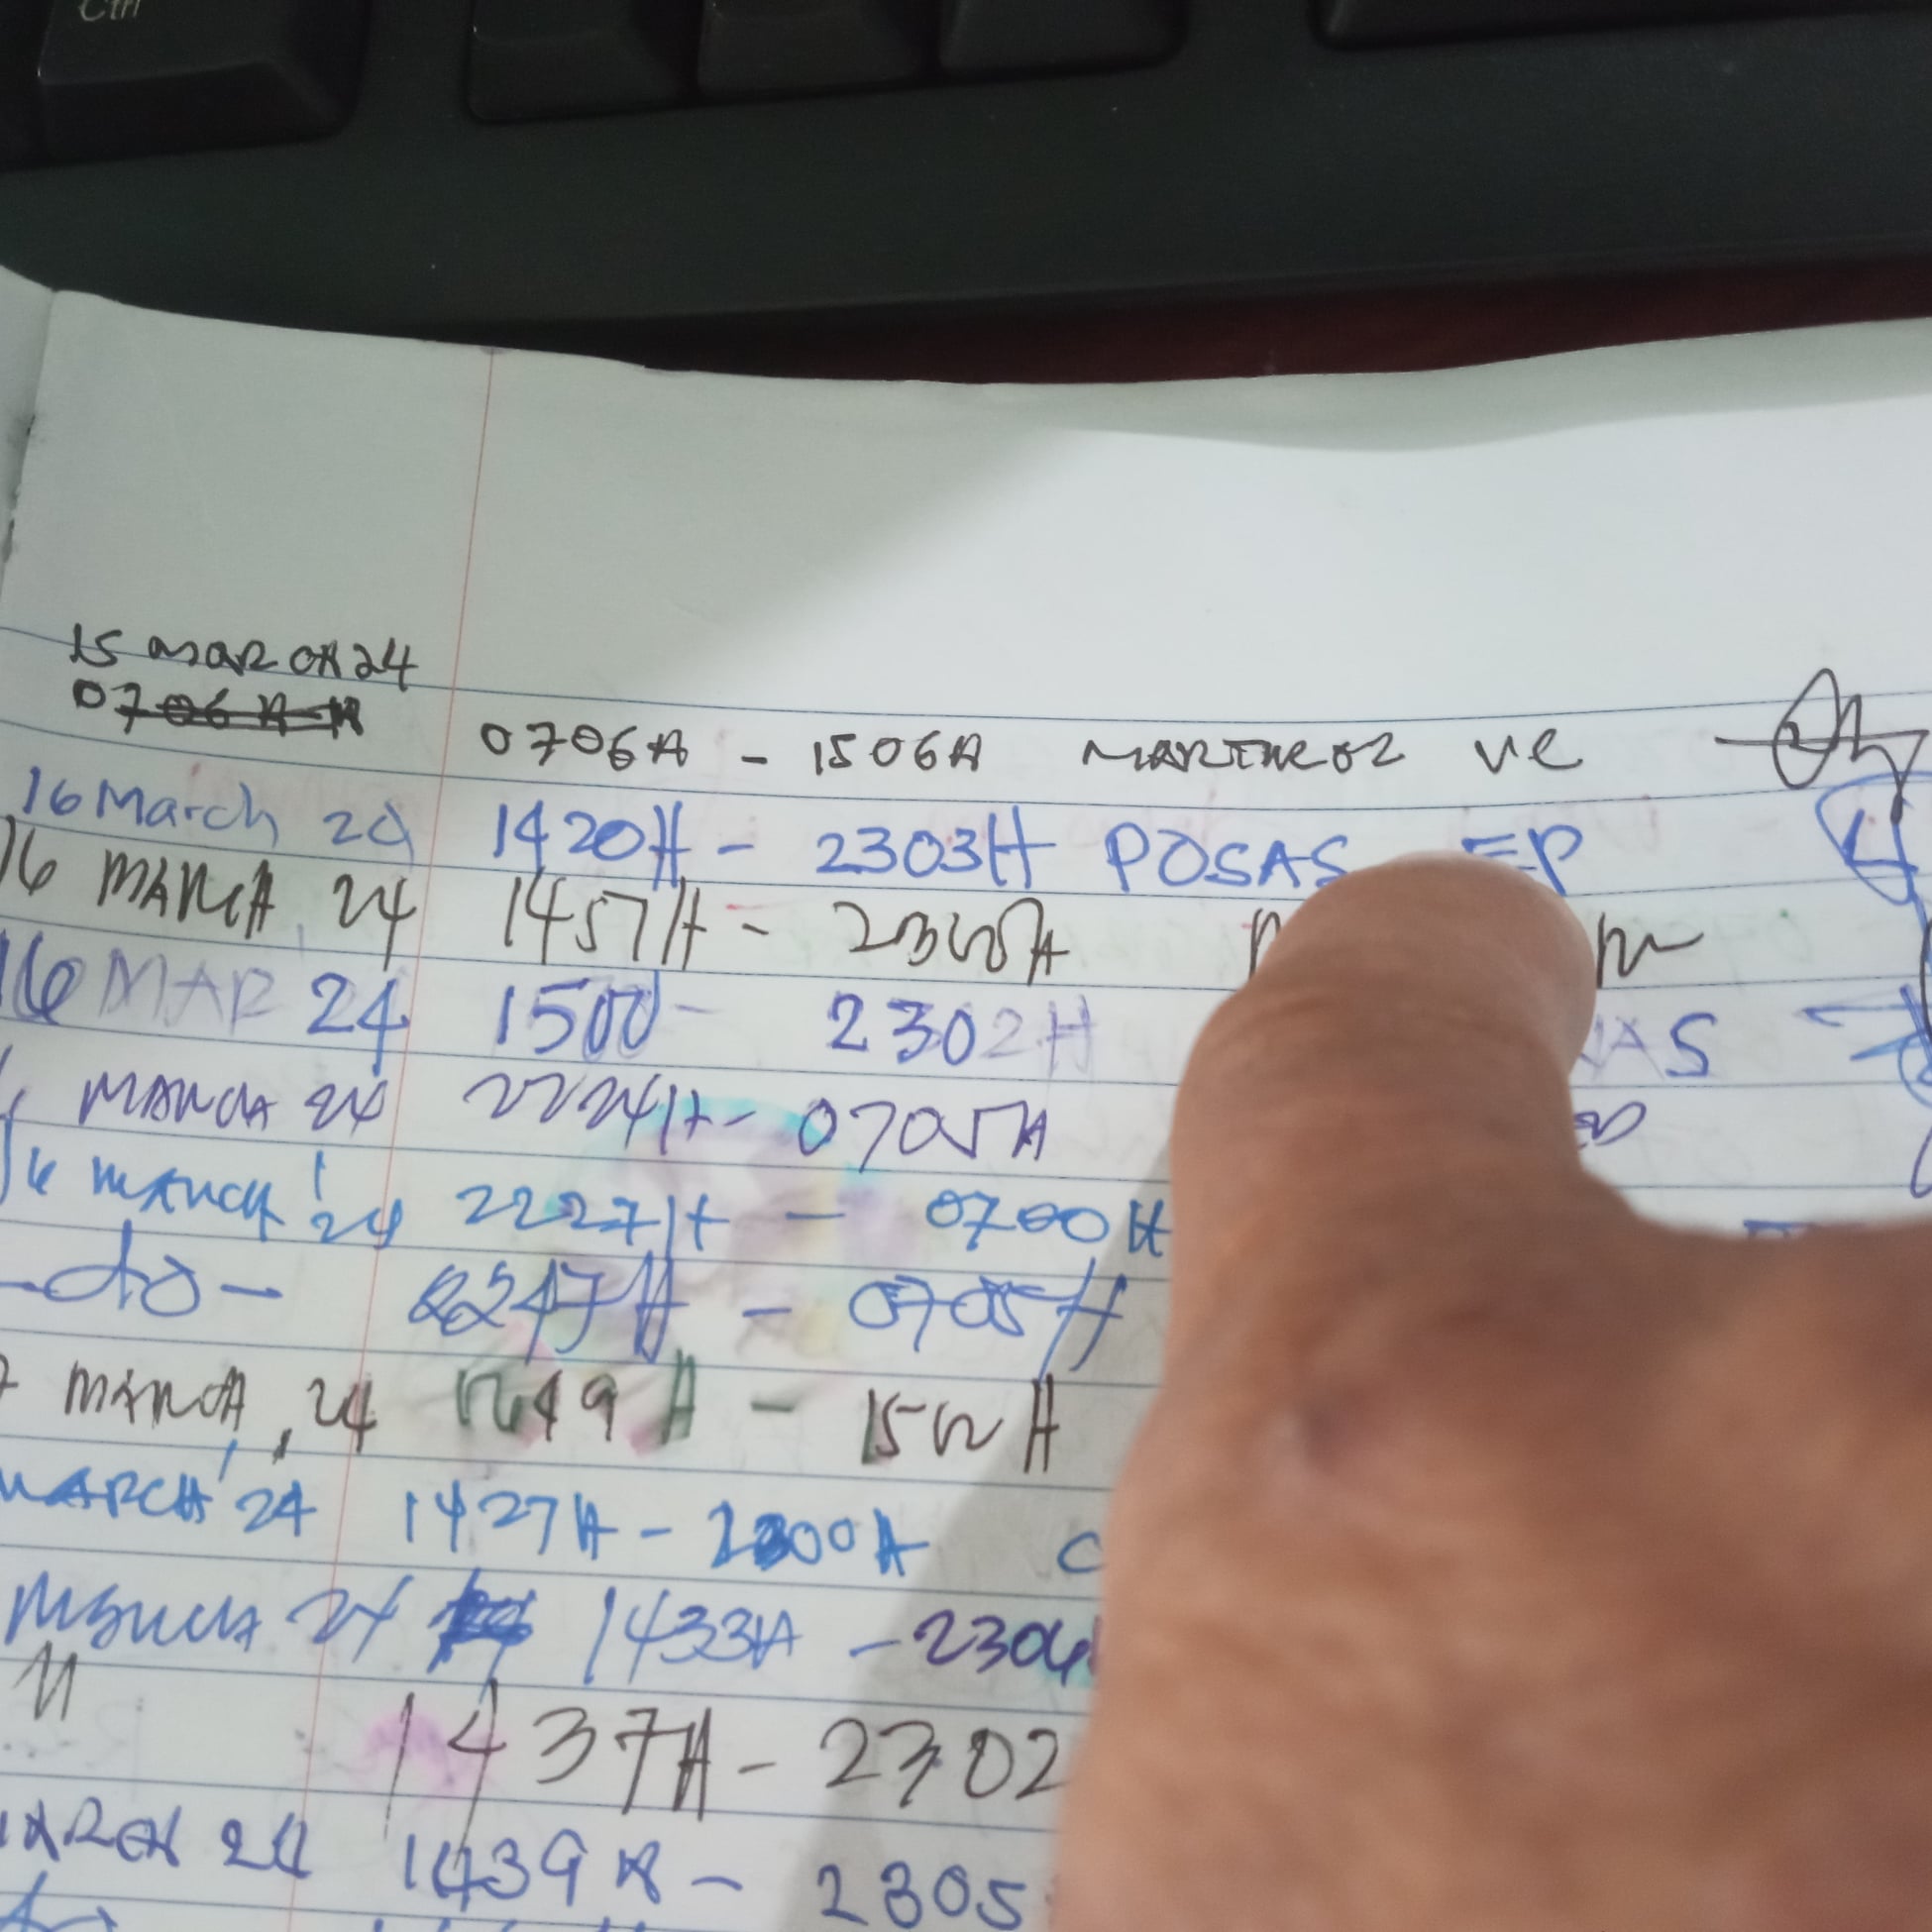 Ctrl
15 MARCH 24
0706H-H
0706H - 1506H MARTINEZ VC
16 March 24 1420H - 2303H POSAS EP
16 MARCH 24 1457H - 2305H
16 MAR 24 1500 - 2302H NAS
MARCH 24 2224H - 0705H
16 MARCH '24 2227H - 0700H
-do- 2247H - 0705H
7 MARCH, 24 1249H - 1502H
MARCH '24 1427H - 2300H C
MARCH 24 1433H - 2304
11 1437H - 2302
MARCH 24 1439H - 2305